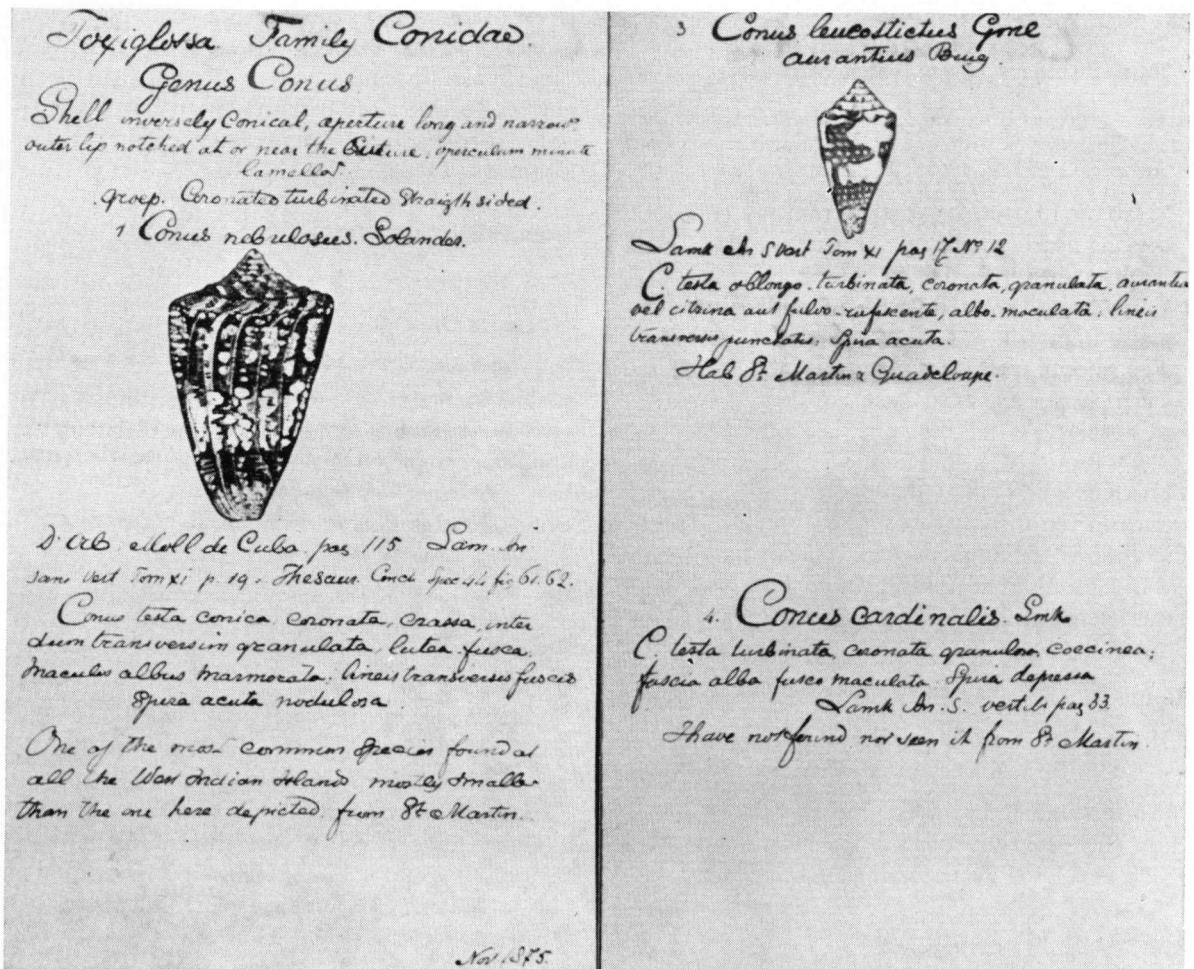 Toxiglossa Family Conidae
Genus Conus
Shell inversely Conical, aperture long and narrow
outer lip notched at or near the operculum minute
lamellar
groep. Coronated turbinated Straigth sided.
1 Conus nebulosus. Solander.
D'Orb. Moll de Cuba. pag 115 Lam. An
sans vert Tom XI p. 19. Thesaur. Conch fig 61.62.
Conus testa conica coronata, crassa, inter
dum transversim granulata, lutea-fusca
maculis albus marmorata; lineis transversis fuscis
Spira acuta nodulosa.
One of the most common Species found at
all the West Indian Island mostly smaller
than the one here depicted from St Martin.
Nov 1875.
3 Conus leucostictus Gme
aurantius Brug.
Lamk An S Vert Tom XI pag 17 No 12
C. testa oblongo-turbinata, coronata, granulata, aurantia
vel citrina aut fulvo-rufescente, albo-maculata; lineis
transversis punctatis; Spira acuta.
Hab St Martin & Guadeloupe.
4. Conus cardinalis. Lmk
C. testa turbinata coronata granulosa coccinea;
fascia alba fusco maculata Spira depressa
Lamk An. S. vert pag 33
I have not found nor seen it from St Martin